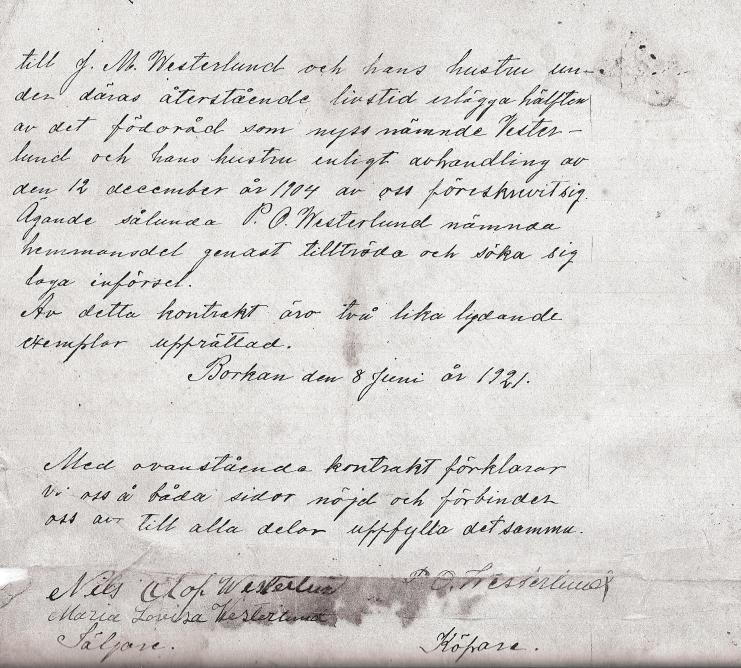 till J. M. Westerlund och hans hustru un-
der däras återstående livstid erlägga hälften
av det födoråd som nyss nämnde Vester-
lund och hans hustru enligt avhandling av
den 12 december år 1904 av oss föreskrivit sig.
Ägande sålunda P. O. Westerlund nämnda
hemmansdel genast tillträda och söka sig
laga införsel.
Av detta kontrakt äro två lika lydande
exemplar upprättad.
Borkan den 8 Juni år 1921.
Med ovanstående kontrakt förklarar
vi oss å båda sidor nöjd och förbinder
oss av till alla delar uppfylla det samma.
Nils Olof Westerlund P. O. Westerlund
Maria Lovisa Westerlund
Säljare. Köpare.